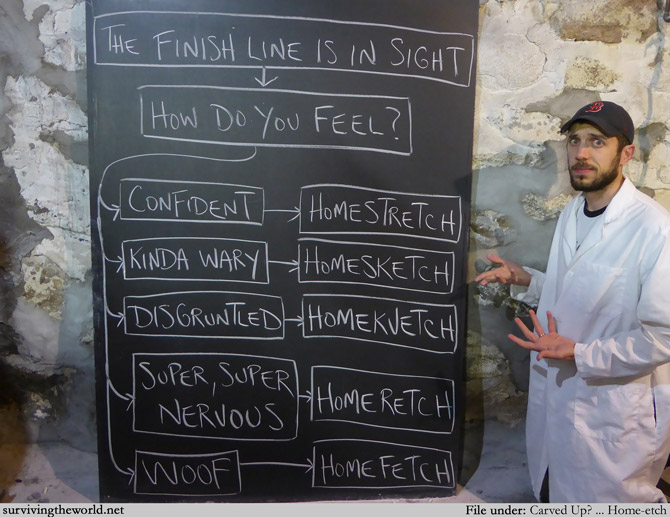 THE FINISH LINE IS IN SIGHT
HOW DO YOU FEEL?
CONFIDENT HOMESTRETCH
KINDA WARY HOMESKETCH
DISGRUNTLED HOMEKVETCH
SUPER, SUPER
NERVOUS HOMERETCH
WOOF HOMEFETCH
B
survivingtheworld.net File under: Carved Up? ... Home-etch